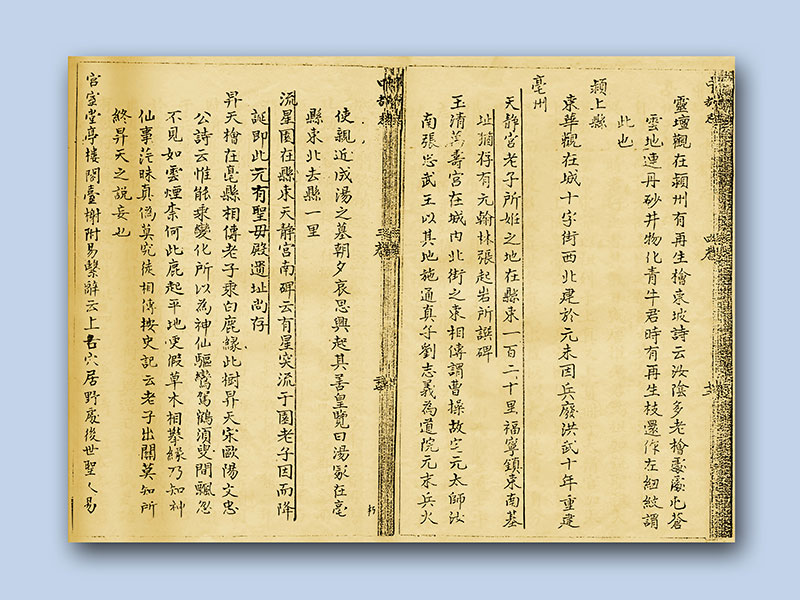 靈壇觀在潁州有再生檜東坡詩云汝陰多老檜處處屯蒼
雲地連丹砂井物化青牛君時有再生枝還作左紐紋謂
此也
潁上縣
東華觀在城十字街西北建於元末因兵廢洪武十年重建
亳州
天靜宮老子所妊之地在縣東一百二十里福寧鎮東南基
址猶存有元翰林張起岩所譔碑
玉清萬壽宮在城內北街之東相傳謂曹操故宅元太師汝
南張忠武王以其地施通真子劉志義為道院元末兵火
使親近成湯之墓朝夕哀思興起其善皇覽曰湯冢在亳
縣東北去縣一里
流星園在縣東天靜宮南碑云有星突流于園老子因而降
誕即此元有聖母殿遺址尚存
昇天檜在亳縣相傳老子乘白鹿緣此樹昇天宋歐陽文忠
公詩云惟能乘變化所以為神仙驅鸞駕鶴須臾間飄忽
不見如雲煙柰何此鹿起平地更假草木相攀緣乃知神
仙事茫昧真偽莫究徒相傳按史記云老子出關莫知所
終昇天之說妄也
宮室堂亭樓閣臺榭附易繫辭云上古穴居野處後世聖人易